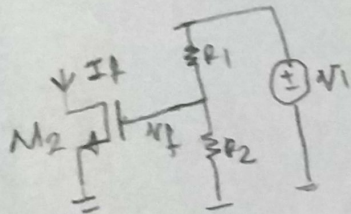 If R1
V1
M2 Vf R2